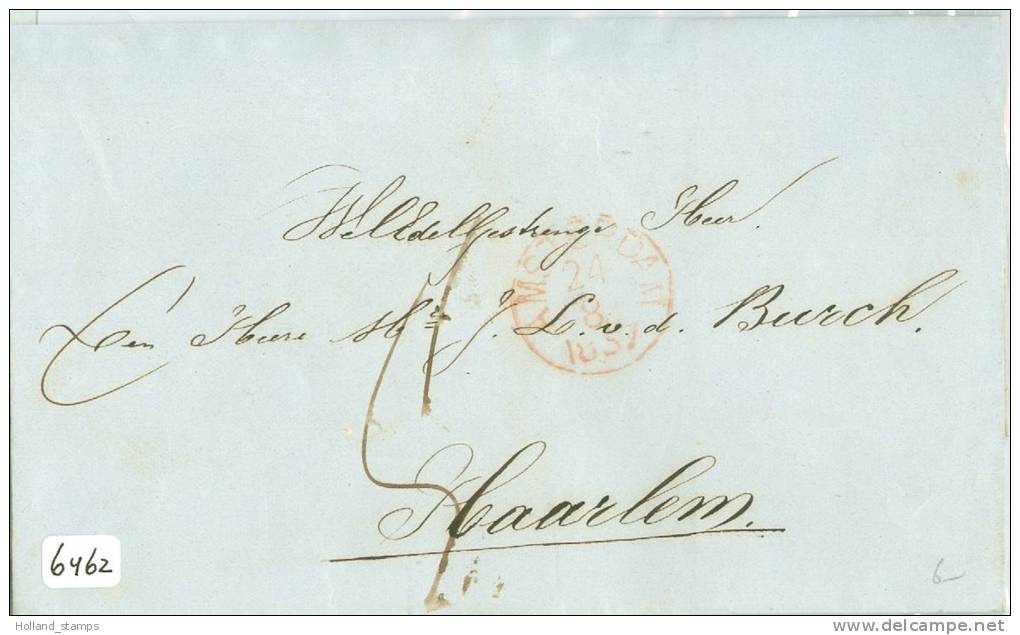 WelEdelGestrenge Heer
Den Heere Mr. J. L. v. d. Burch.
Haarlem.
AMSTERDAM
24
8
1857
5
6462
6-
Holland_stamps
www.delcampe.net